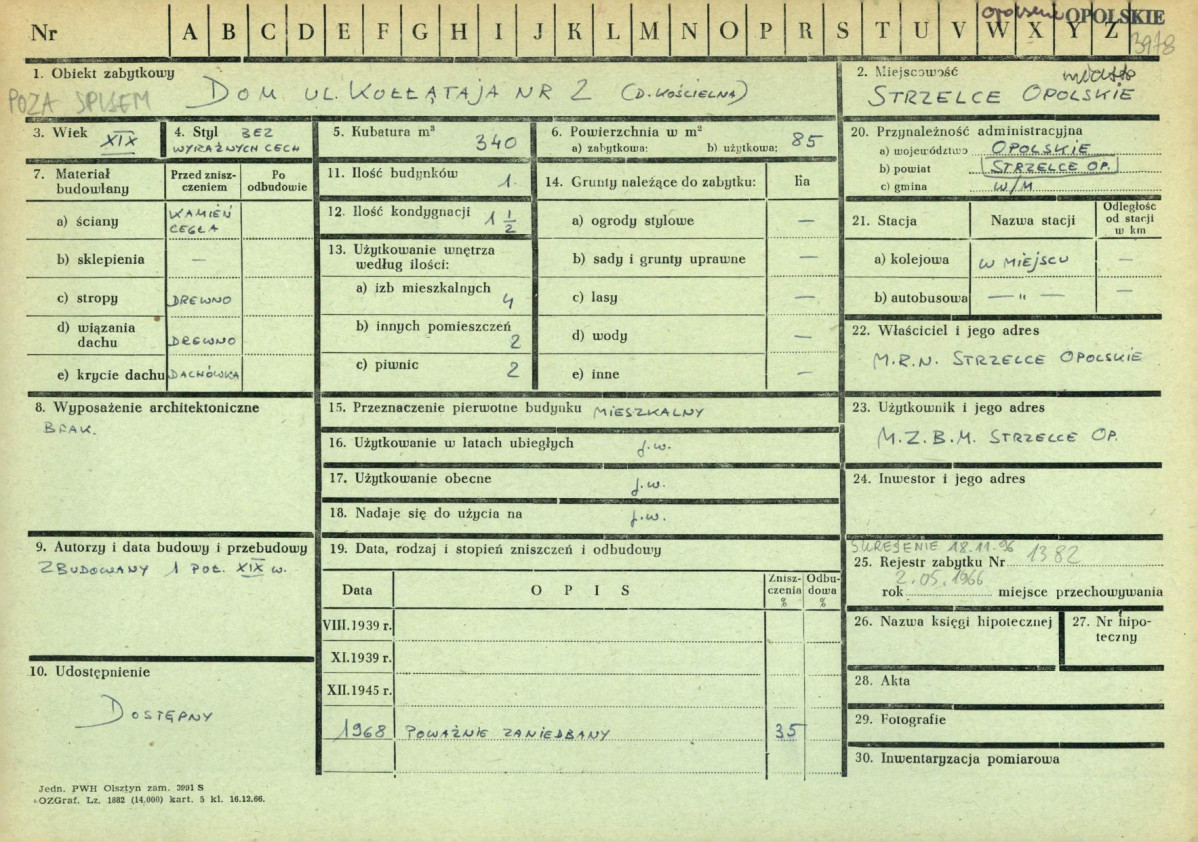 opolskie OPOLSKIE
Nr A B C D E F G H I J K L M N O P R S T U V W X Y Z
3978
1. Obiekt zabytkowy
POZA SPISEM
DOM UL. KOŁŁĄTAJA NR 2 (D. KOŚCIELNA)
2. Miejscowość
miasto
STRZELCE OPOLSKIE
3. Wiek XIX
4. Styl BEZ
WYRAŹNYCH CECH
5. Kubatura m³ 340
6. Powierzchnia w m²
a) zabytkowa: b) użytkowa: 85
20. Przynależność administracyjna
a) województwo OPOLSKIE
b) powiat STRZELCE OP.
c) gmina W/M
7. Materiał budowlany
Przed zniszczeniem
Po odbudowie
a) ściany KAMIEŃ
CEGŁA
b) sklepienia —
c) stropy DREWNO
d) wiązania dachu DREWNO
e) krycie dachu DACHÓWKA
11. Ilość budynków 1.
12. Ilość kondygnacji 1 1/2
13. Użytkowanie wnętrza
według ilości:
a) izb mieszkalnych 4
b) innych pomieszczeń 2
c) piwnic 2
14. Grunty należące do zabytku: ha
a) ogrody stylowe —
b) sady i grunty uprawne —
c) lasy —
d) wody —
e) inne —
21. Stacja Nazwa stacji Odległość od stacji w km
a) kolejowa W MIEJSCU —
b) autobusowa — „ — —
22. Właściciel i jego adres
M.R.N. STRZELCE OPOLSKIE
8. Wyposażenie architektoniczne
BRAK.
15. Przeznaczenie pierwotne budynku MIESZKALNY
16. Użytkowanie w latach ubiegłych j.w.
17. Użytkowanie obecne j.w.
18. Nadaje się do użycia na j.w.
23. Użytkownik i jego adres
M.Z.B.M. STRZELCE OP.
24. Inwestor i jego adres
9. Autorzy i data budowy i przebudowy
ZBUDOWANY 1 POŁ. XIX w.
19. Data, rodzaj i stopień zniszczeń i odbudowy
Data OPIS Zniszczenia % Odbudowa %
VIII.1939 r.
XI.1939 r.
XII.1945 r.
1968 POWAŻNIE ZANIEDBANY 35
SKREŚLENIE 18.11.96
25. Rejestr zabytku Nr 1382
2.05.1966
rok miejsce przechowywania
26. Nazwa księgi hipotecznej
27. Nr hipoteczny
28. Akta
29. Fotografie
30. Inwentaryzacja pomiarowa
10. Udostępnienie
DOSTĘPNY
Jedn. PWH Olsztyn zam. 3991 S
OZGraf. Lz. 1882 (14.000) kart. 5 kl. 16.12.66.